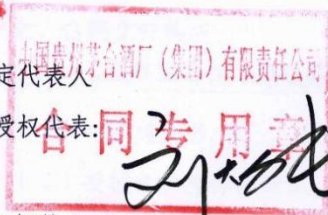 中国贵州茅台酒厂（集团）有限责任公司
定代表人
授权代表:
合同专用章